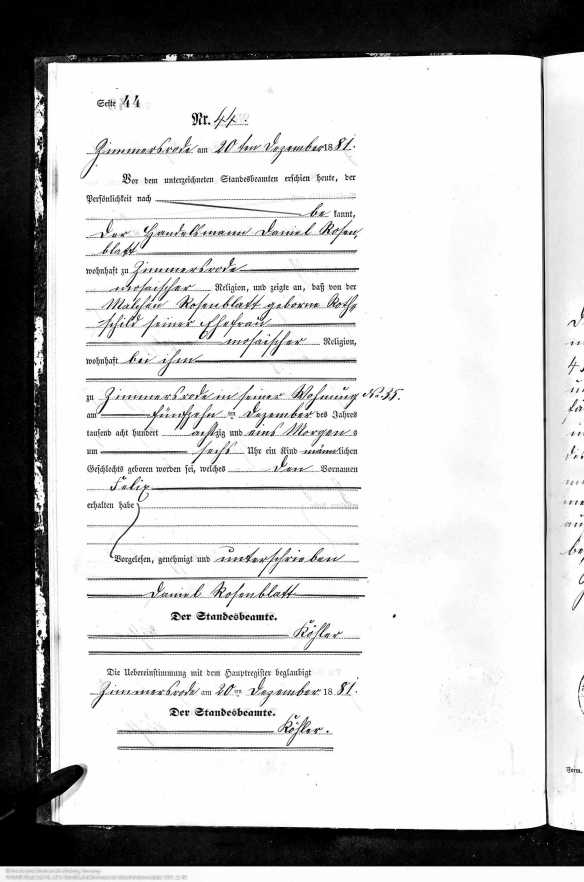 Seite 44
Nr. 44.
Zimmersrode am 20 ten Dezember 1881.
Vor dem unterzeichneten Standesbeamten erschien heute, der
Persönlichkeit nach
be kannt,
der Handelsmann Daniel Rosen
blatt
wohnhaft zu Zimmersrode
mosaischer Religion, und zeigte an, daß von der
Malchen Rosenblatt geborne Roth
schild seiner Ehefrau
mosaischer Religion,
wohnhaft bei ihm
zu Zimmersrode in seiner Wohnung No. 35.
am fünfzehn ten Dezember des Jahres
tausend acht hundert achtzig und eins Morgens
um sechs Uhr ein Kind männlichen
Geschlechts geboren worden sei, welches den Vornamen
Felix
erhalten habe
Vorgelesen, genehmigt und unterschrieben
Daniel Rosenblatt
Der Standesbeamte.
Köhler
Die Uebereinstimmung mit dem Hauptregister beglaubigt
Zimmersrode am 20 ten Dezember 1881.
Der Standesbeamte.
Köhler.
Form.